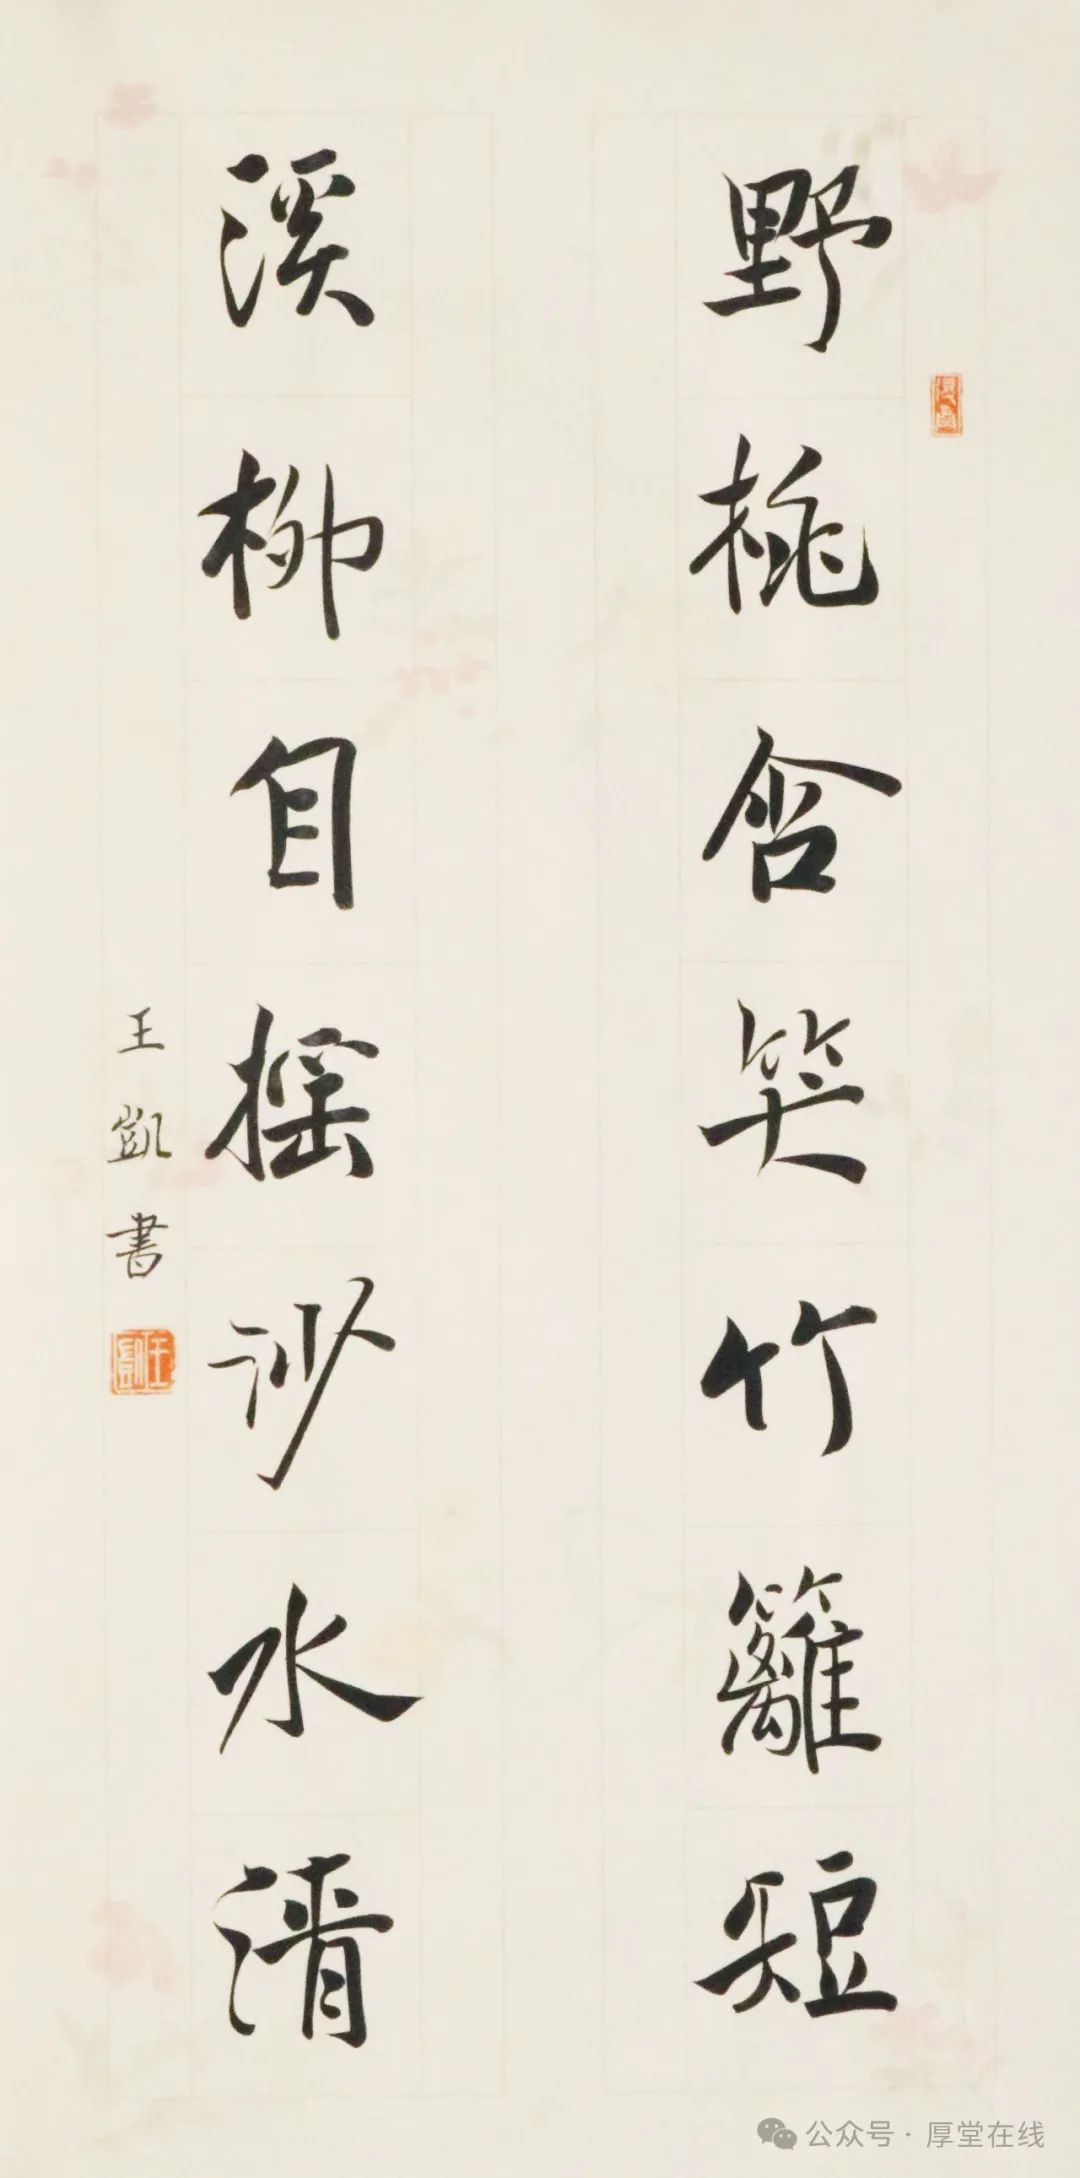 野桃含笑竹籬短
溪柳自摇沙水清
王凱書
王凱
公众号·厚堂在线